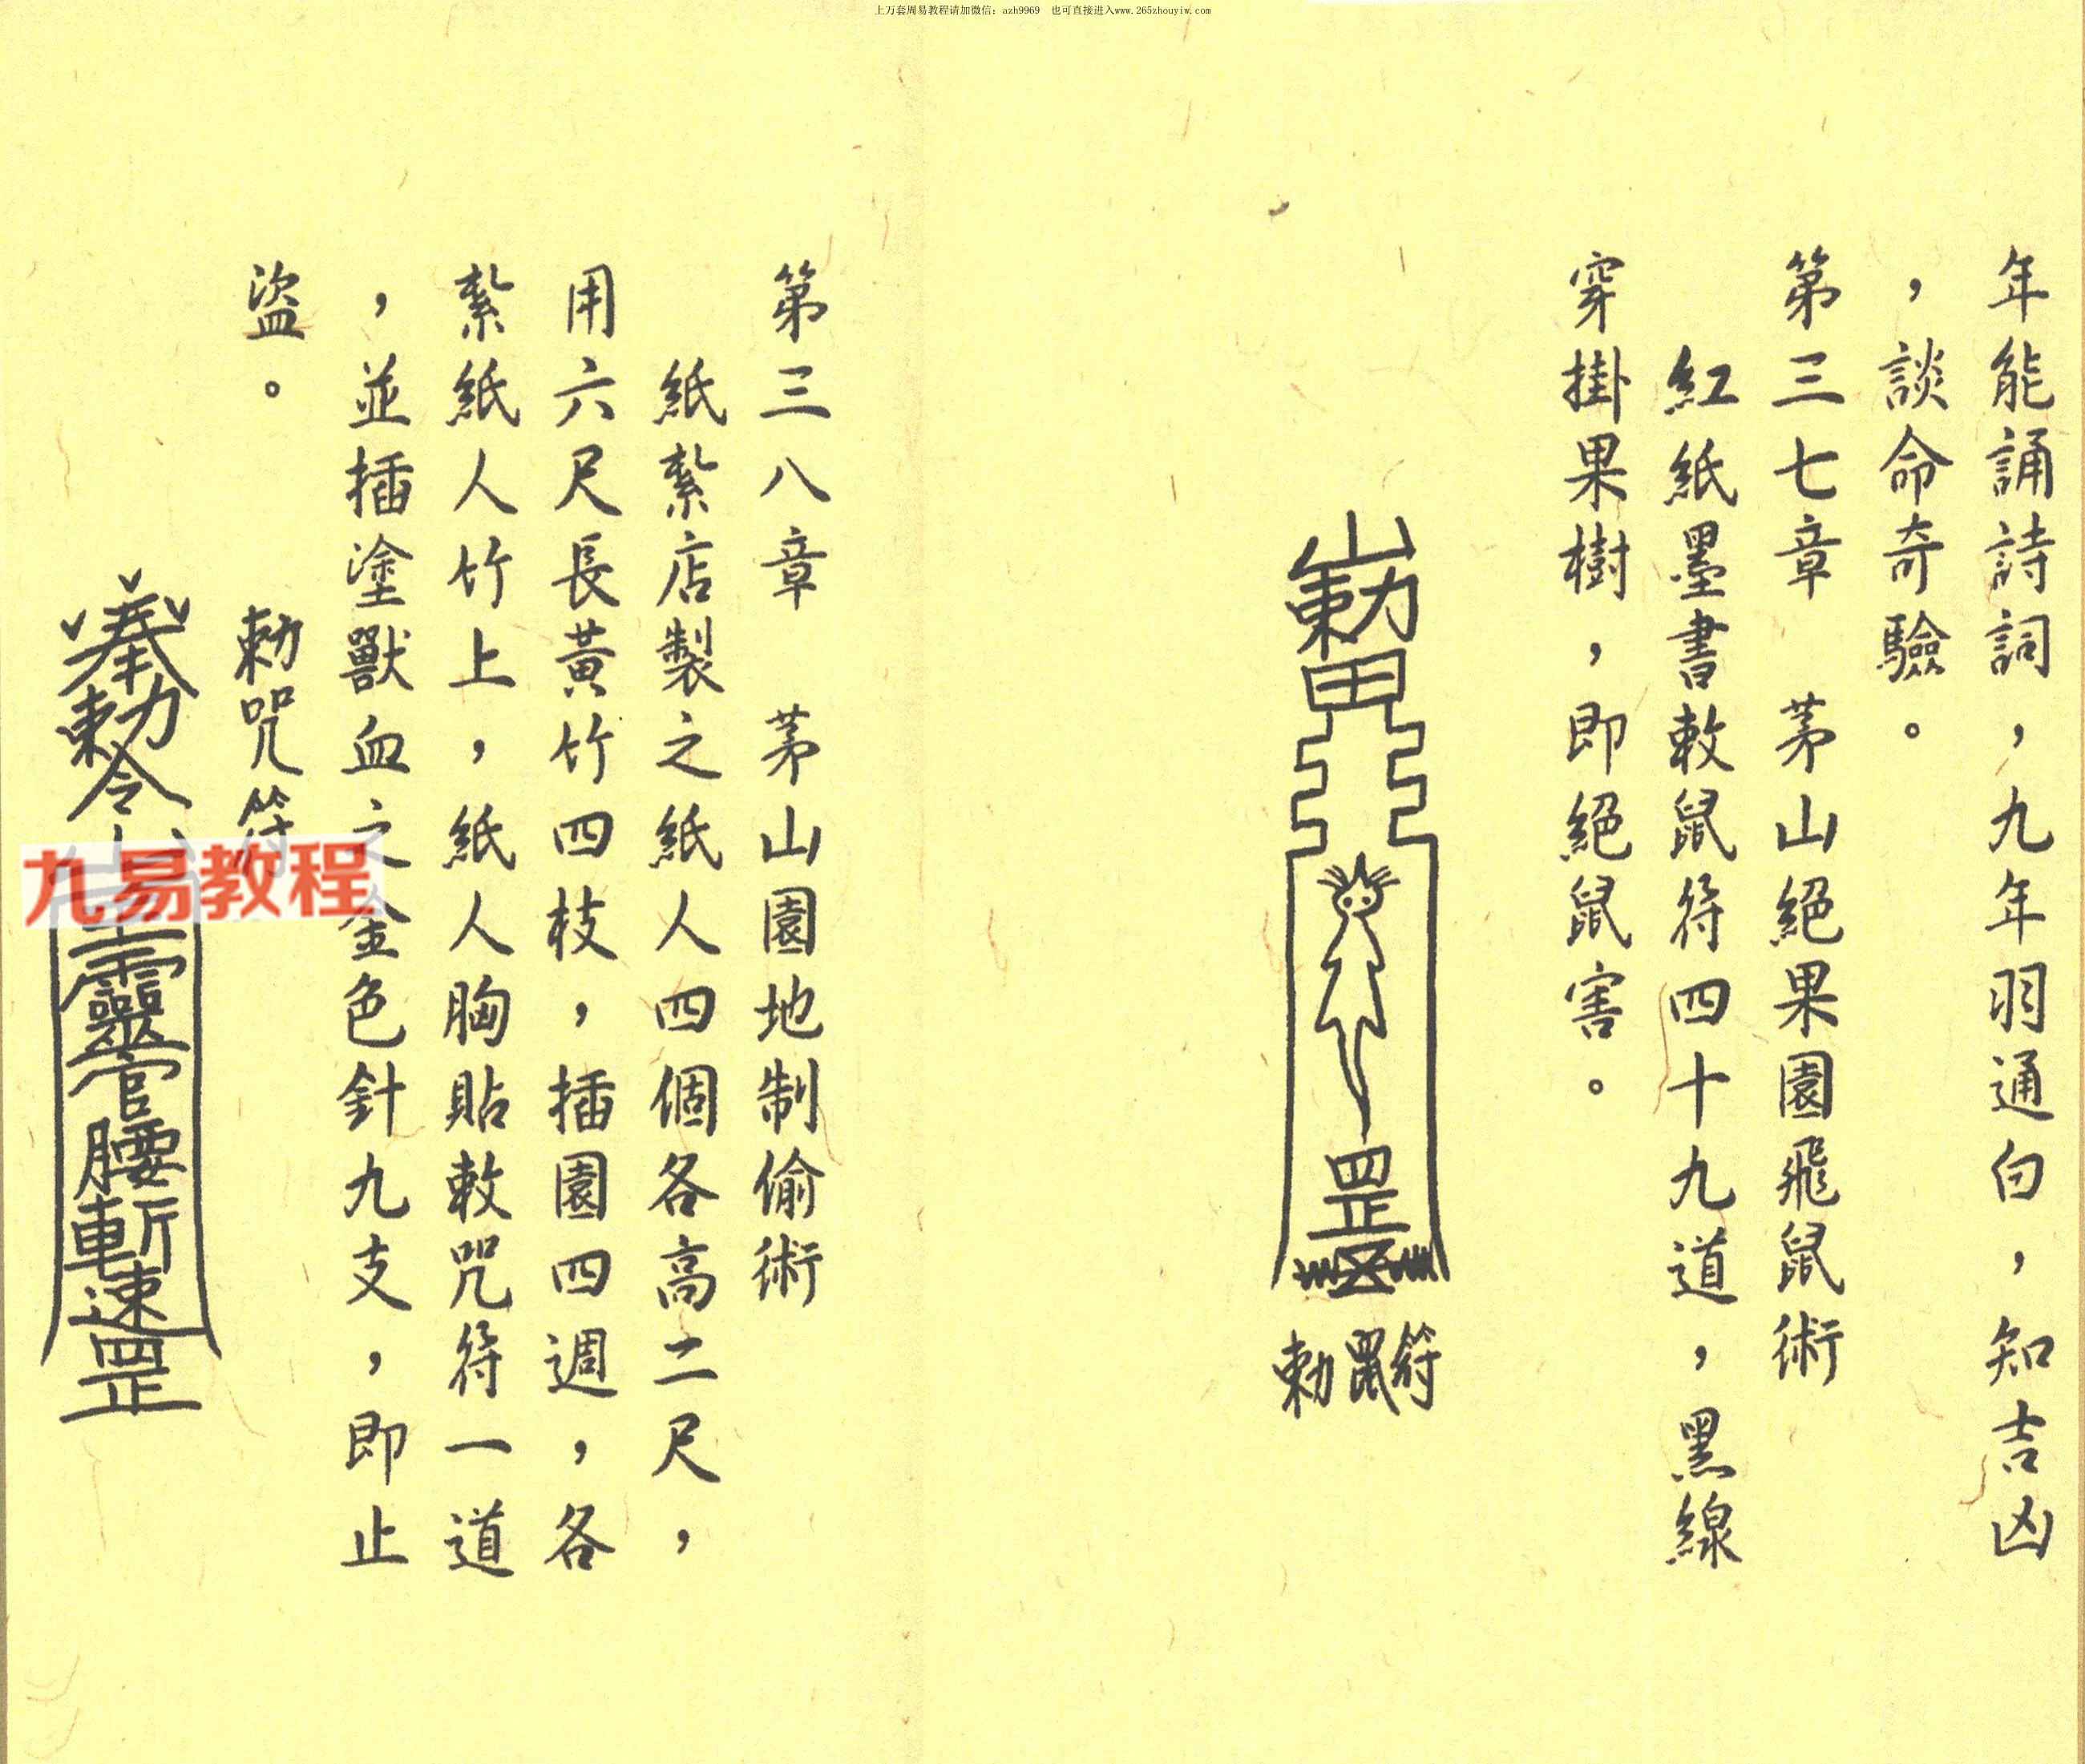 上万套周易教程请加微信：azh9969 也可直接进入www.265zhouyiw.com
年能誦詩詞，九年羽通白，知吉凶
，談命奇驗。
第三七章 茅山絕果園飛鼠術
紅紙墨書敕鼠符四十九道，黑線
穿掛果樹，即絕鼠害。
勅鼠符
第三八章 茅山園地制偷術
紙紮店製之紙人四個各高二尺，
用六尺長黃竹四枝，插園四週，各
紮紙人竹上，紙人胸貼敕咒符一道
，並插塗獸血之金色針九支，即止
盜。
勅咒符
奉勅令
靈官腰斬速罡
九易教程